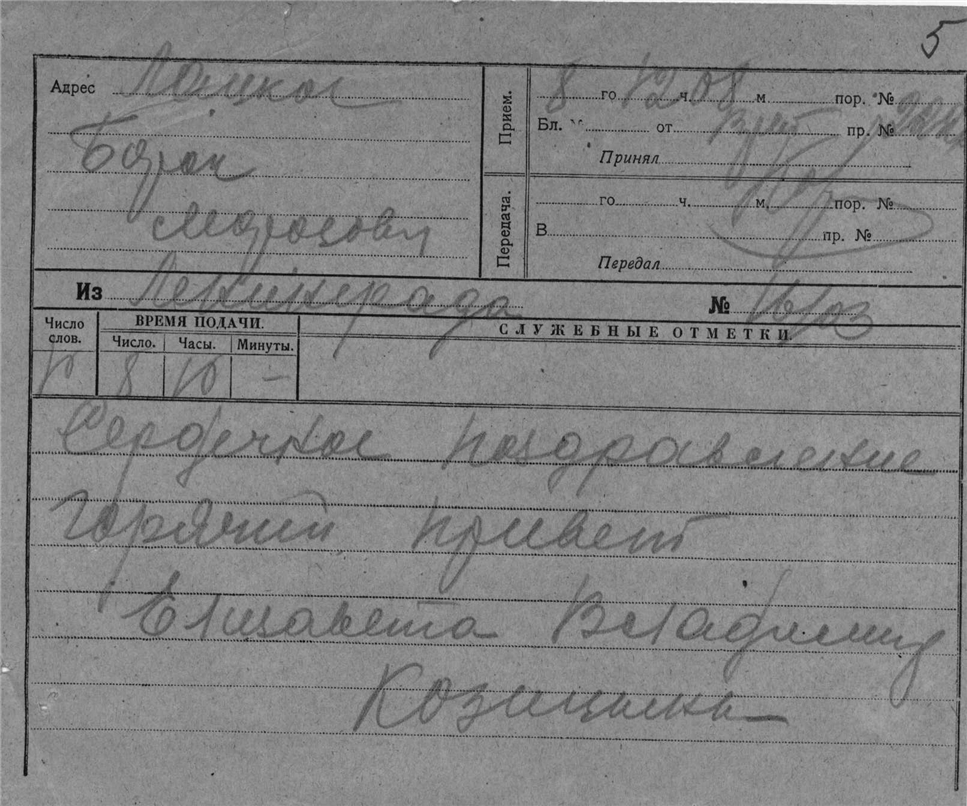 5
Адрес
Морозову
Прием.
8 го 12 ч. 08 м. пор. №
Бл. от пр. №
Принял
Передача.
го ч. м. пор. №
В пр. №
Передал
Из Ленинграда №
Число слов.
ВРЕМЯ ПОДАЧИ.
Число. Часы. Минуты.
8 10 —
СЛУЖЕБНЫЕ ОТМЕТКИ.
Сердечное поздравление
горячий привет
Елизавета Владимир
Козицыны